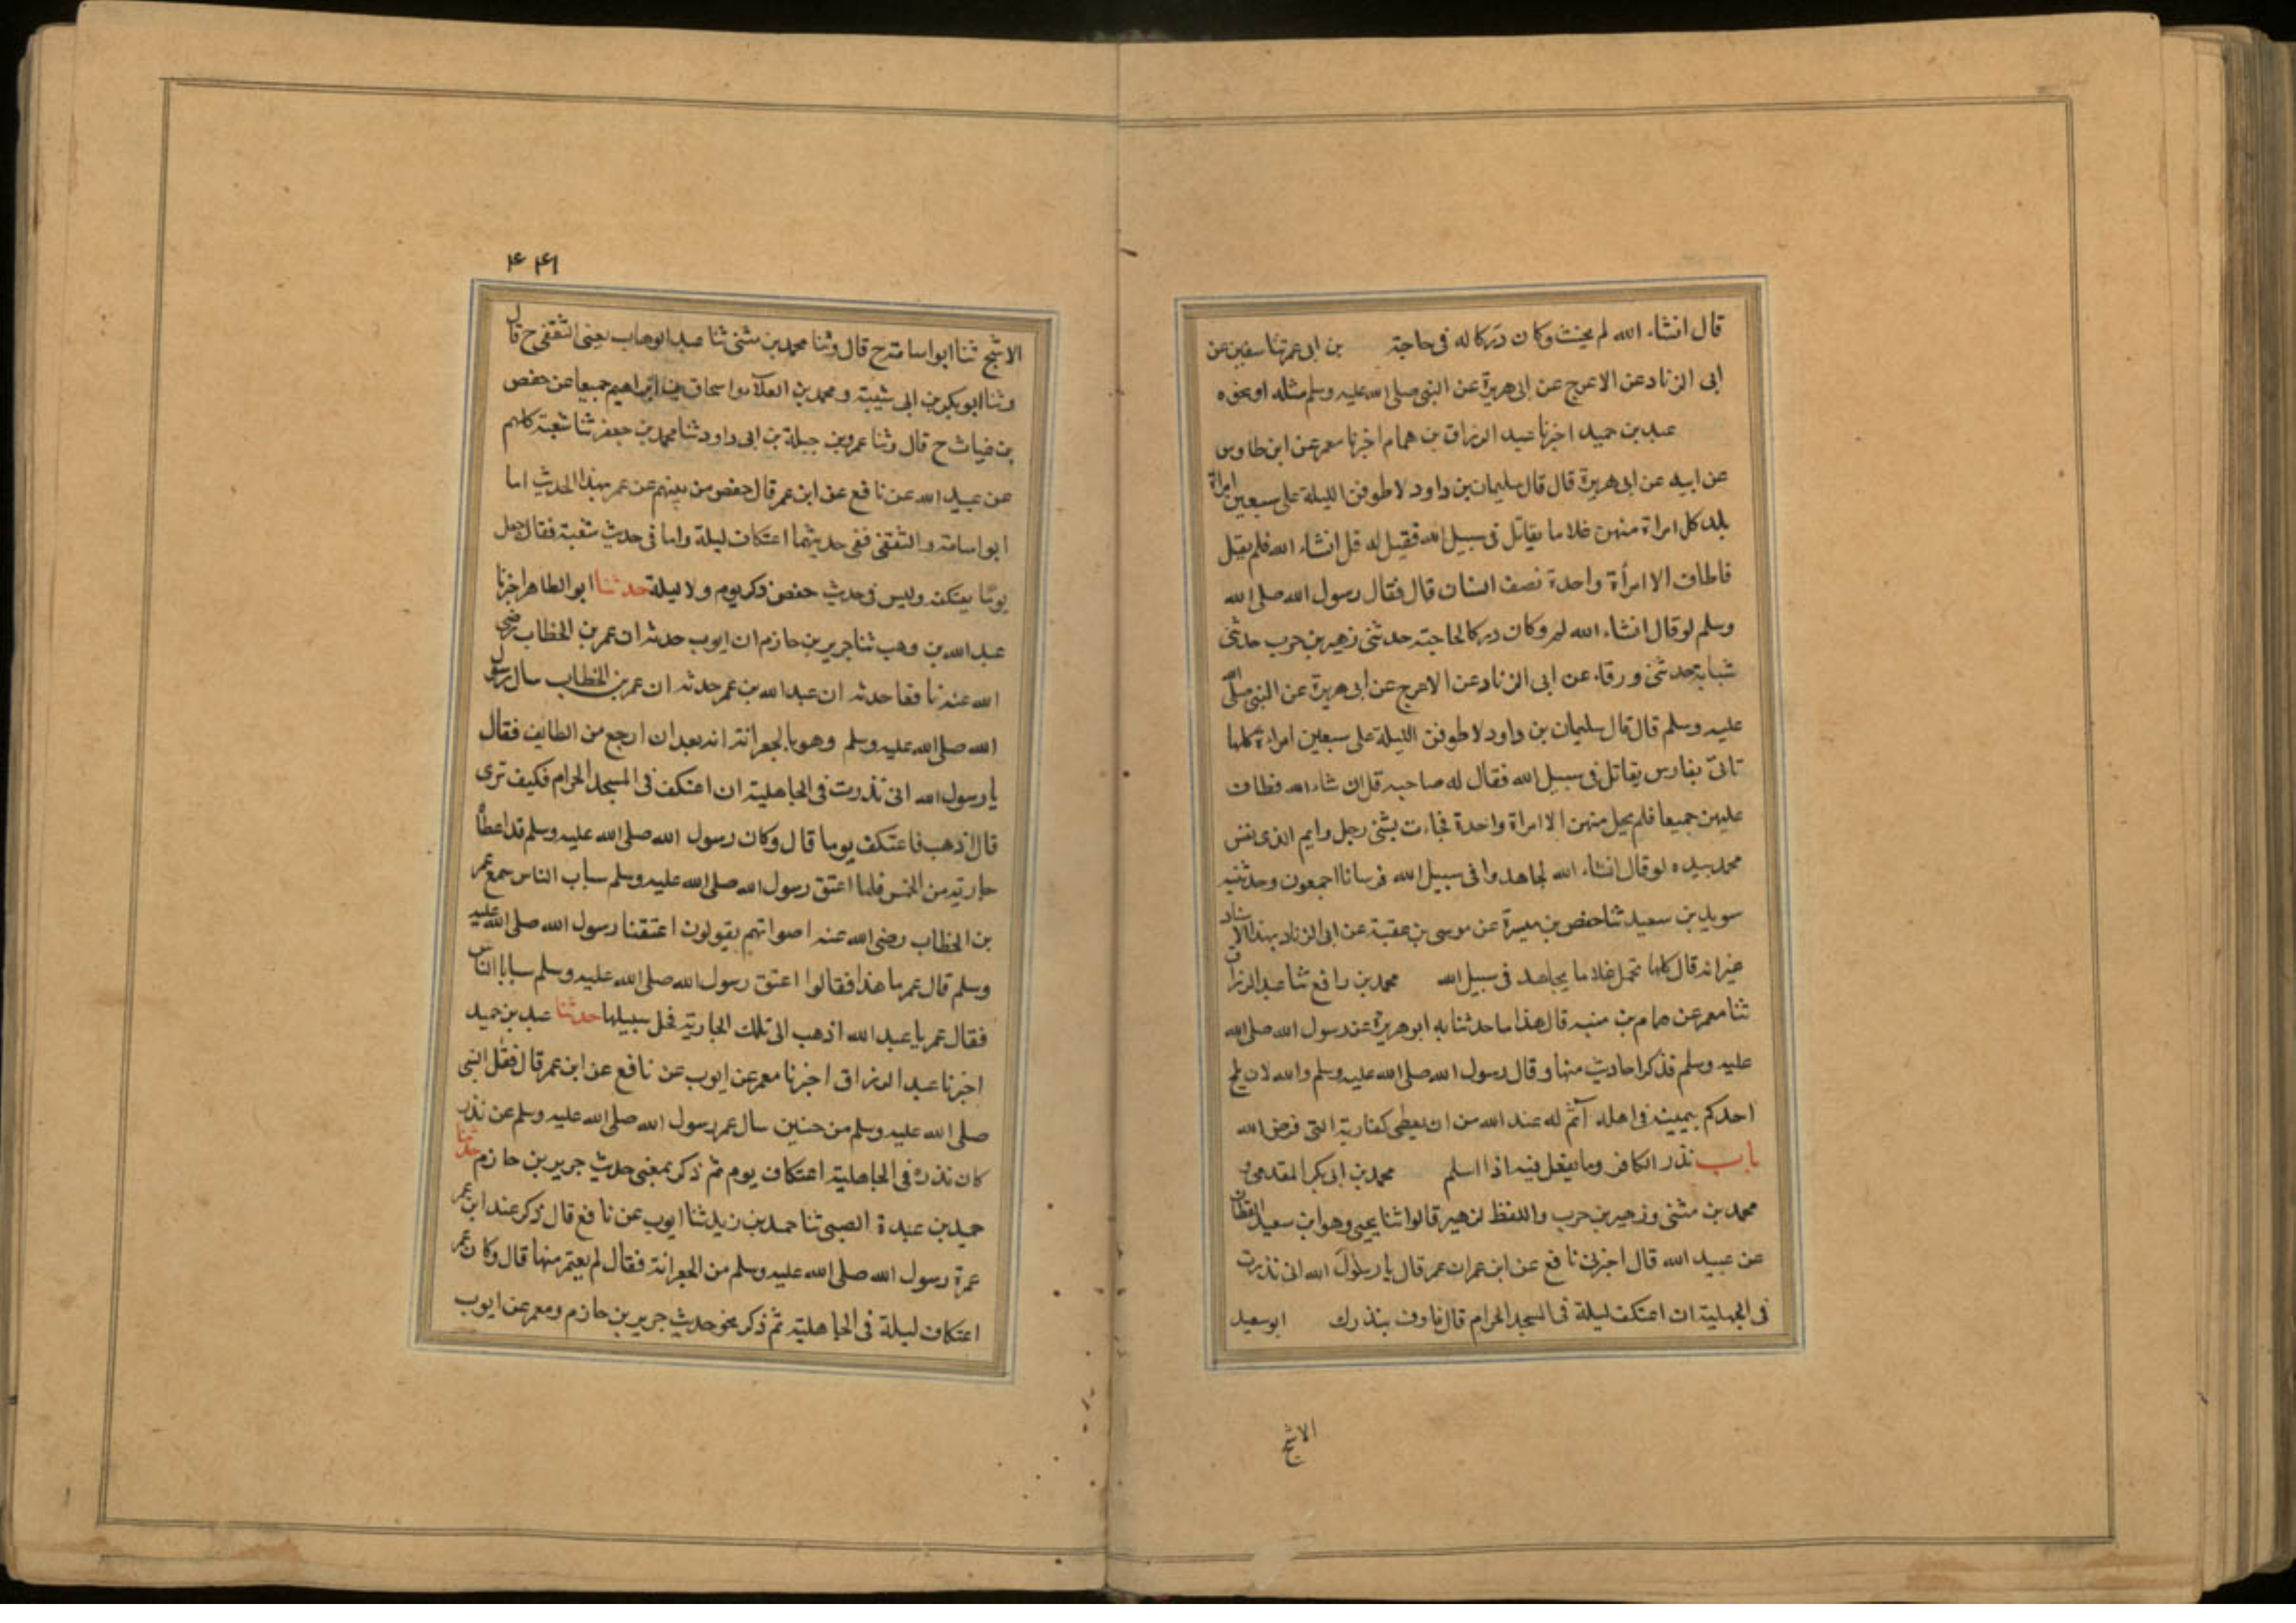 قال انشاء الله لم يحنث وكان دركا له فى حاجته بن ابى عمر ثنا سفين عن
ابى الزناد عن الاعرج عن ابى هريرة عن النبى صلى الله عليه وسلم مثله او نحوه
عبد بن حميد اخبرنا عبد الرزاق بن همام اخبرنا معمر عن ابن طاوس
عن ابيه عن ابى هريرة قال قال سليمان بن داود لاطوفن الليلة على سبعين امراة
يلد كل امراة منهن غلاما يقاتل فى سبيل الله فقيل له قل انشاء الله فلم يقل
فاطاف الا امرأة واحدة نصف انسان قال فقال رسول الله صلى الله
وسلم لو قال انشاء الله لم وكان دركا لحاجته حدثنى زهير بن حرب حدثنى
شبابة حدثنى ورقاء عن ابى الزناد عن الاعرج عن ابى هريرة عن النبى صلى الله
عليه وسلم قال قال سليمان بن داود لاطوفن الليلة على سبعين امراة كلها
تاتى بفارس يقاتل فى سبيل الله فقال له صاحبه قل ان شاء الله فطاف
عليهن جميعا فلم يحل منهن الا امراة واحدة فجاءت بشى رجل وايم الذى نفس
محمد بيده لو قال انشاء الله لجاهدوا فى سبيل الله فرسانا اجمعون وحدثنيه
سويد بن سعيد ثنا حفص بن ميسرة عن موسى بن عقبة عن ابى الزناد بهذا الاسناد
غير انه قال كلها تحمل غلاما يجاهد فى سبيل الله محمد بن رافع ثنا عبد الرزاق
ثنا معمر عن همام بن منبه قال هذا ما حدثنا به ابو هريرة عن رسول الله صلى الله
عليه وسلم فذكر احاديث منها وقال رسول الله صلى الله عليه وسلم والله لان يلج
احدكم بيمينه فى اهله آثم له عند الله من ان يعطى كفارته التى فرض الله
باب نذر الكافر وما يفعل فيه اذا اسلم محمد بن ابى بكر المقدمى و
محمد بن مثنى وزهير بن حرب واللفظ لزهير قالوا ثنا يحيى وهو ابن سعيد القطان
عن عبيد الله قال اخبرنى نافع عن ابن عمر ان عمر قال يا رسول الله انى نذرت
فى الجهلية ان اعتكف ليلة فى المسجد الحرام قال فاوف بنذرك ابو سعيد
الاشج
۴۴۱
الاشج ثنا ابو اسامة ح قال وثنا محمد بن مثنى ثنا عبد الوهاب يعنى الثقفى ح قال
وثنا ابو بكر بن ابى شيبة ومحمد بن العلاء واسحاق بن ابراهيم جميعا عن حفص
بن غياث ح قال وثنا عمرو بن جبلة بن ابى داود ثنا محمد بن جعفر ثنا شعبة كلهم
عن عبيد الله عن نافع عن ابن عمر قال حفص من بينهم عن عمر بهذا الحديث اما
ابو اسامة والثقفى ففى حديثهما اعتكاف ليلة واما فى حديث شعبة فقال جعل
يوما يعتكف وليس فى حديث حفص ذكر يوم ولا ليلة حدثنا ابو الطاهر اخبرنا
عبد الله بن وهب ثنا جرير بن حازم ان ايوب حدثه ان عمر بن الخطاب رضى
الله عنه نافعا حدثه ان عبد الله بن عمر حدثه ان عمر بن الخطاب سال رسول
الله صلى الله عليه وسلم وهو بالجعرانة انه بعد ان ارجع من الطايف فقال
يا رسول الله انى نذرت فى الجاهلية ان اعتكف فى المسجد الحرام فكيف ترى
قال اذهب فاعتكف يوما قال وكان رسول الله صلى الله عليه وسلم قد اعطا
جارية من الخمس فلما اعتق رسول الله صلى الله عليه وسلم سباب الناس جمع عمر
بن الخطاب رضى الله عنه اصواتهم يقولون اعتقنا رسول الله صلى الله عليه
وسلم قال عمر ما هذا فقالوا اعتق رسول الله صلى الله عليه وسلم سبابا الناس
فقال عمر يا عبد الله اذهب الى تلك الجارية فخل سبيلها حدثنا عبد بن حميد
اخبرنا عبد الرزاق اخبرنا معمر عن ايوب عن نافع عن ابن عمر قال فقل النبى
صلى الله عليه وسلم من حنين سال عمر رسول الله صلى الله عليه وسلم عن نذر
كان نذره فى الجاهلية اعتكاف يوم ثم ذكر بمعنى حديث جرير بن حازم حدثنا
حميد بن عبدة الضبى ثنا حمد بن زيد ثنا ايوب عن نافع قال ذكر عند ابن عمر
عمرة رسول الله صلى الله عليه وسلم من الجعرانة فقال لم يعتمر منها قال وكان عمر
اعتكاف ليلة فى الجاهلية ثم ذكر نحو حديث جرير بن حازم ومعمر عن ايوب